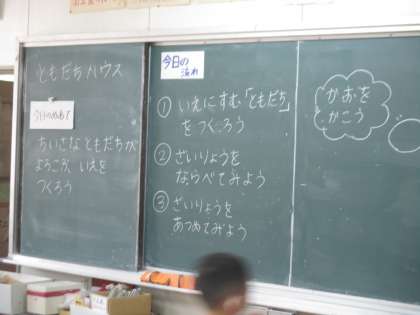 ともだちハウス
今日のめあて
ちいさなともだちが
よろこぶ、いえを
つくろう
今日の
流れ
① いえにすむ「ともだち」
をつくろう
② ざいりょうを
ならべてみよう
③ ざいりょうを
あつめてみよう
かおを
かこう